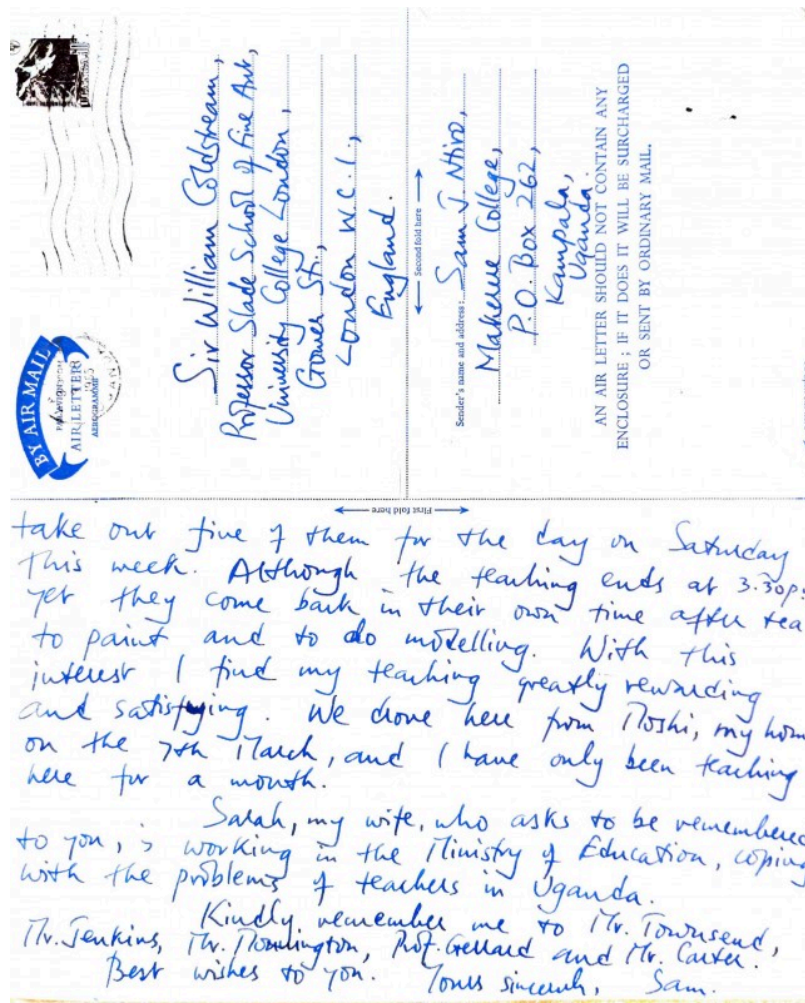 BY AIR MAIL
AIR LETTER
AEROGRAMME
Sir William Coldstream,
Professor Slade School of Fine Art,
University College London,
Gower St.,
London W.C.1.,
England.
Second fold here
Sender's name and address: Sam J. Ntiro,
Makerere College,
P.O. Box 262,
Kampala,
Uganda.
AN AIR LETTER SHOULD NOT CONTAIN ANY
ENCLOSURE ; IF IT DOES IT WILL BE SURCHARGED
OR SENT BY ORDINARY MAIL.
First fold here
take out five of them for the day on Saturday
this week. Although the teaching ends at 3.30p.
yet they come back in their own time after tea
to paint and to do modelling. With this
interest I find my teaching greatly rewarding
and satisfying. We drove here from Moshi, my home
on the 7th March, and I have only been teaching
here for a month.
Sarah, my wife, who asks to be remembered
to you, is working in the Ministry of Education, coping
with the problems of teachers in Uganda.
Kindly remember me to Mr. Townsend,
Mr. Jenkins, Mr. Prof. Gerrard and Mr. Carter.
Best wishes to you. Yours sincerely, Sam.